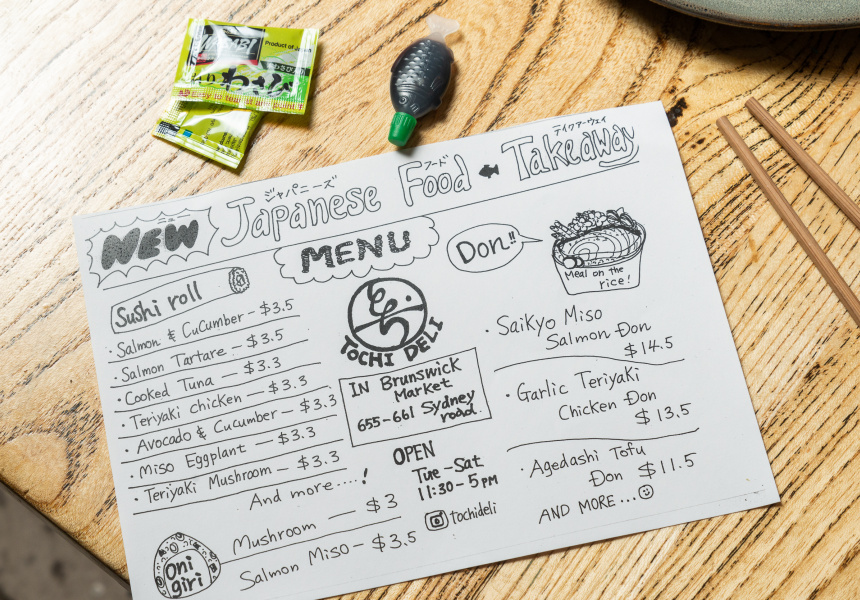 Product of Japan
ジャパニーズ フード テイクアーウェイ
ニュー
NEW Japanese Food Takeaway
MENU
Sushi roll
· Salmon & CuCumber - $3.5
· Salmon Tartare - $3.5
· Cooked Tuna - $3.3
· Teriyaki chicken - $3.3
· Avocado & Cucumber - $3.3
· Miso Eggplant - $3.3
· Teriyaki Mushroom - $3.3
And more....!
oni
giri
Mushroom - $3
Salmon Miso - $3.5
TOCHI DELI
IN Brunswick
Market
655-661 Sydney
road.
OPEN
Tue-Sat
11:30-5PM
tochideli
Don!!
Meal on the
rice!
· Saikyo Miso
Salmon Don
$14.5
· Garlic Teriyaki
Chicken Don
$13.5
· Agedashi Tofu
Don $11.5
AND MORE...